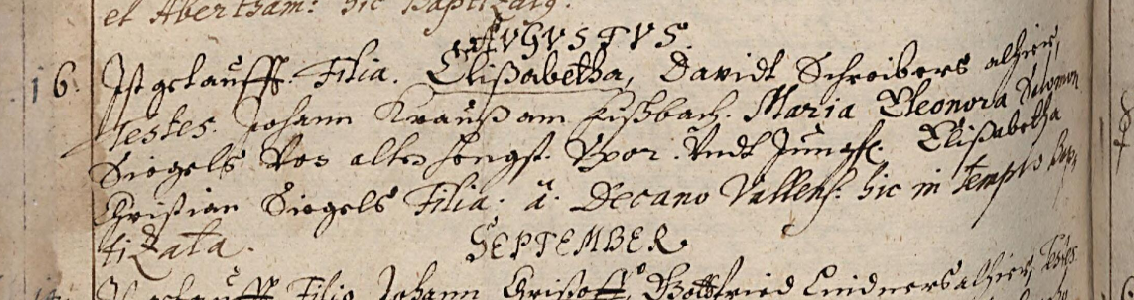 et Abertham: hic Baptizatq.
AVGVSTVS.
16. Ist getaufft. Filia. Elißabetha, Davidt Schreibers alhier,
Testes. Johann Krauß am Fußbach. Maria Eleonora Salomon
Siegels Von alten Hengst. Vxor. Undt Jungfr. Elißabetha
Christian Siegels Filia. à. Decano Vallens. hic in Templo Bap,,
tiZata.
SEPTEMBER
Ist getaufft Filiq Johann Gottfried Lindners alhier, Testes